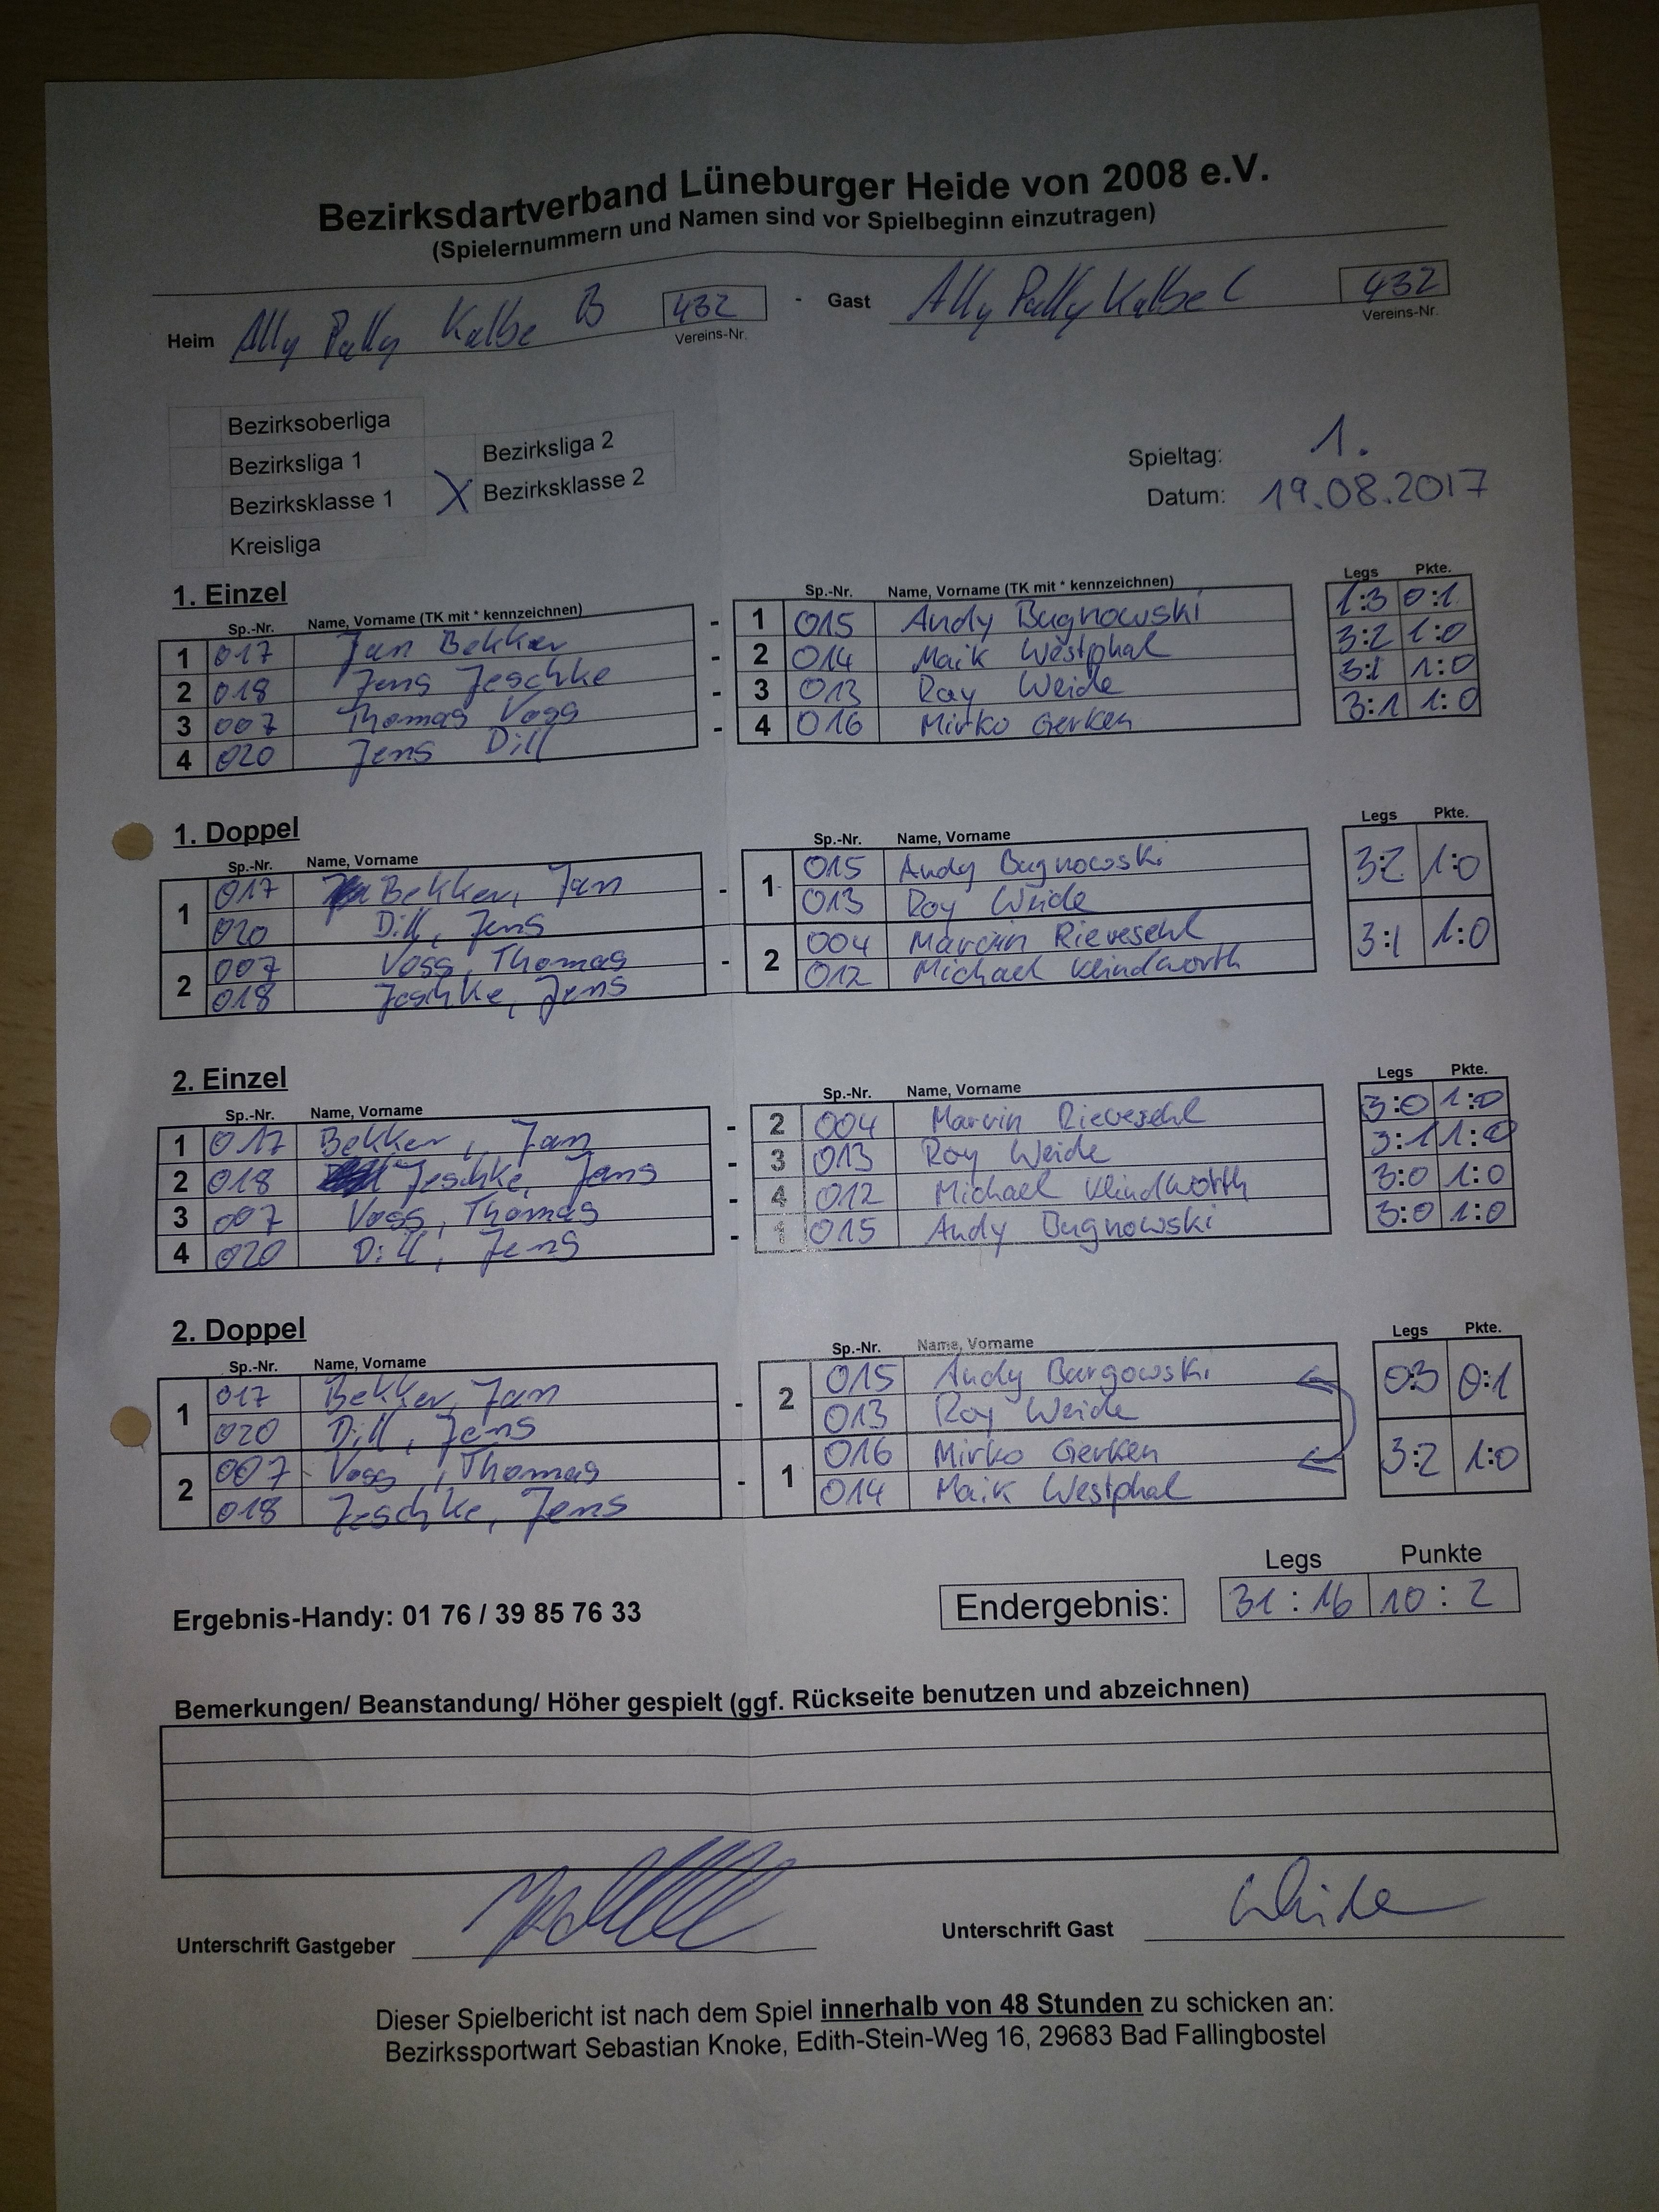 Bezirksdartverband Lüneburger Heide von 2008 e.V.
(Spielernummern und Namen sind vor Spielbeginn einzutragen)
Heim Ally Pally Kalbe B 432 - Gast Ally Pally Kalbe C 432
Vereins-Nr. Vereins-Nr.
Bezirksoberliga
Bezirksliga 1 Bezirksliga 2
Bezirksklasse 1 X Bezirksklasse 2
Kreisliga
Spieltag: 1.
Datum: 19.08.2017
1. Einzel
Sp.-Nr. Name, Vorname (TK mit * kennzeichnen) Sp.-Nr. Name, Vorname (TK mit * kennzeichnen) Legs Pkte.
1 017 Jan Bekker - 1 015 Andy Bugnowski 1:3 0:1
2 018 Jens Jeschke - 2 014 Maik Westphal 3:2 1:0
3 007 Thomas Voss - 3 013 Roy Weide 3:1 1:0
4 020 Jens Dill - 4 016 Mirko Gerken 3:1 1:0
1. Doppel
Sp.-Nr. Name, Vorname Sp.-Nr. Name, Vorname Legs Pkte.
1 017 Bekker, Jan - 1 015 Andy Bugnowski 3:2 1:0
020 Dill, Jens 013 Roy Weide
2 007 Voss, Thomas - 2 004 Marvin Rieveschl 3:1 1:0
018 Jeschke, Jens 012 Michael Klindworth
2. Einzel
Sp.-Nr. Name, Vorname Sp.-Nr. Name, Vorname Legs Pkte.
1 017 Bekker, Jan - 2 004 Marvin Rieveschl 3:0 1:0
2 018 Jeschke, Jens - 3 013 Roy Weide 3:1 1:0
3 007 Voss, Thomas - 4 012 Michael Klindworth 3:0 1:0
4 020 Dill, Jens - 1 015 Andy Bugnowski 3:0 1:0
2. Doppel
Sp.-Nr. Name, Vorname Sp.-Nr. Name, Vorname Legs Pkte.
1 017 Bekker, Jan - 2 015 Andy Bargowski 0:3 0:1
020 Dill, Jens 013 Roy Weide
2 007 Voss, Thomas - 1 016 Mirko Gerken 3:2 1:0
018 Jeschke, Jens 014 Maik Westphal
Legs Punkte
Ergebnis-Handy: 01 76 / 39 85 76 33 Endergebnis: 31 : 16 10 : 2
Bemerkungen/ Beanstandung/ Höher gespielt (ggf. Rückseite benutzen und abzeichnen)
Unterschrift Gastgeber Unterschrift Gast Weide
Dieser Spielbericht ist nach dem Spiel innerhalb von 48 Stunden zu schicken an:
Bezirkssportwart Sebastian Knoke, Edith-Stein-Weg 16, 29683 Bad Fallingbostel